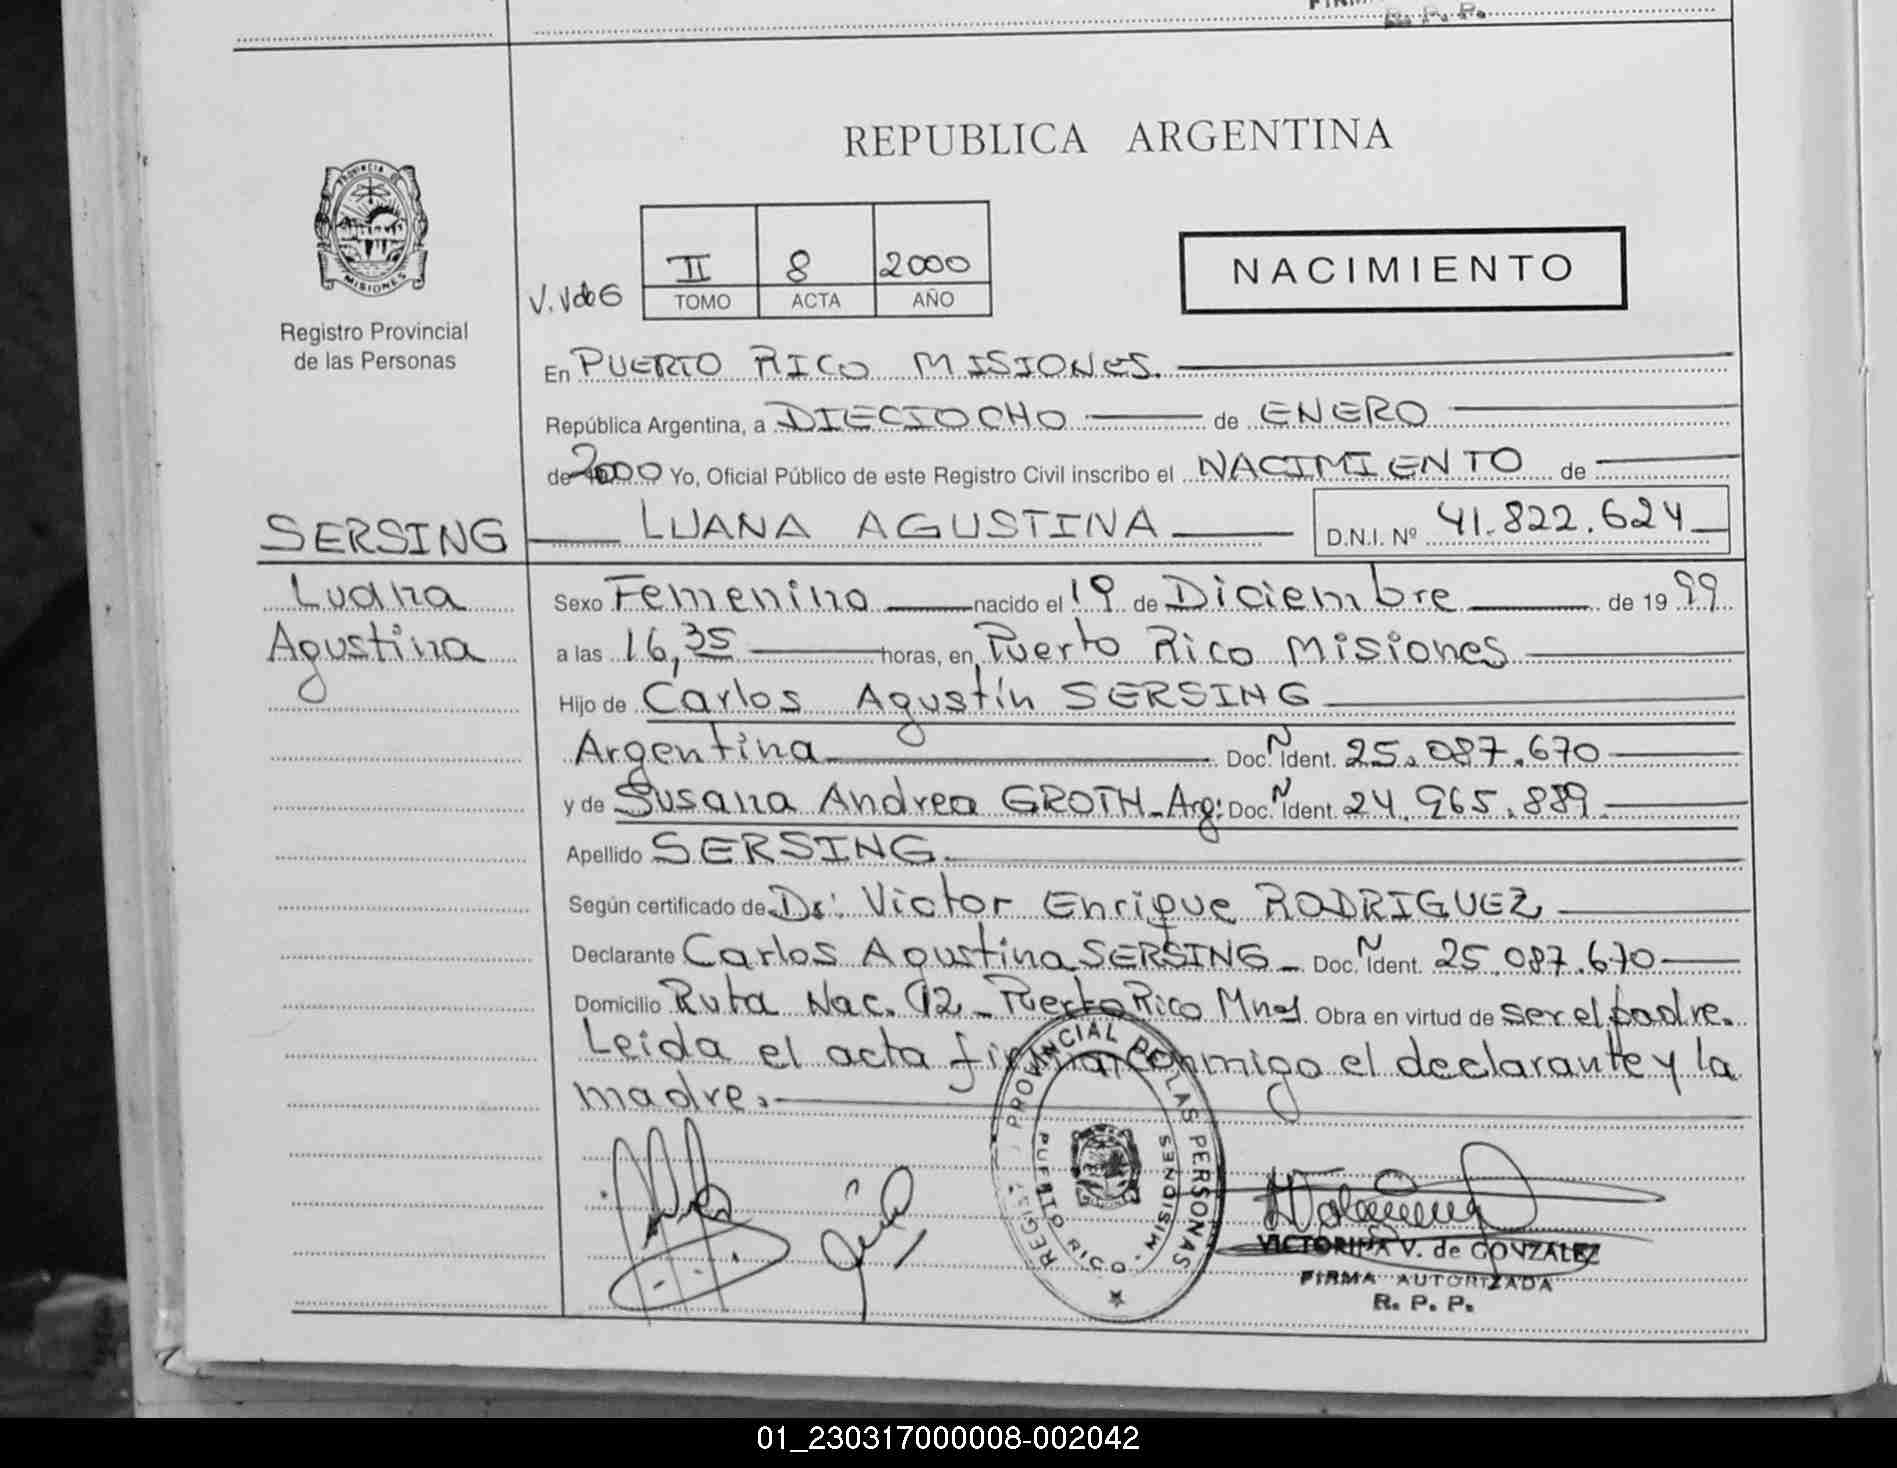 R. P. P.
REPUBLICA ARGENTINA
PROVINCIA DE
MISIONES
Registro Provincial
de las Personas
II 8 2000
TOMO ACTA AÑO
NACIMIENTO
En PUERTO RICO MISIONES.
República Argentina, a DIECIOCHO de ENERO
de 2000 Yo, Oficial Público de este Registro Civil inscribo el NACIMIENTO de
SERSING LUANA AGUSTINA D.N.I. Nº 41.822.624
Luana
Agustina
Sexo Femenino nacido el 19 de Diciembre de 1999
a las 16,35 horas, en Puerto Rico Misiones
Hijo de Carlos Agustín SERSING
Argentina Doc. N Ident. 25.087.670
y de Susana Andrea GROTH - Arg: Doc. N Ident. 24.965.889
Apellido SERSING
Según certificado de Dr: Victor Enrique RODRIGUEZ
Declarante Carlos Agustina SERSING - Doc. N Ident. 25.087.670
Domicilio Ruta Nac. 12 - Puerto Rico Mnes Obra en virtud de ser el padre.
Leida el acta firman conmigo el declarante y la
madre.
REGISTRO PROVINCIAL DE LAS PERSONAS
PUERTO RICO - MISIONES
VICTORINA V. de GONZALEZ
FIRMA AUTORIZADA
R. P. P.
01_230317000008-002042